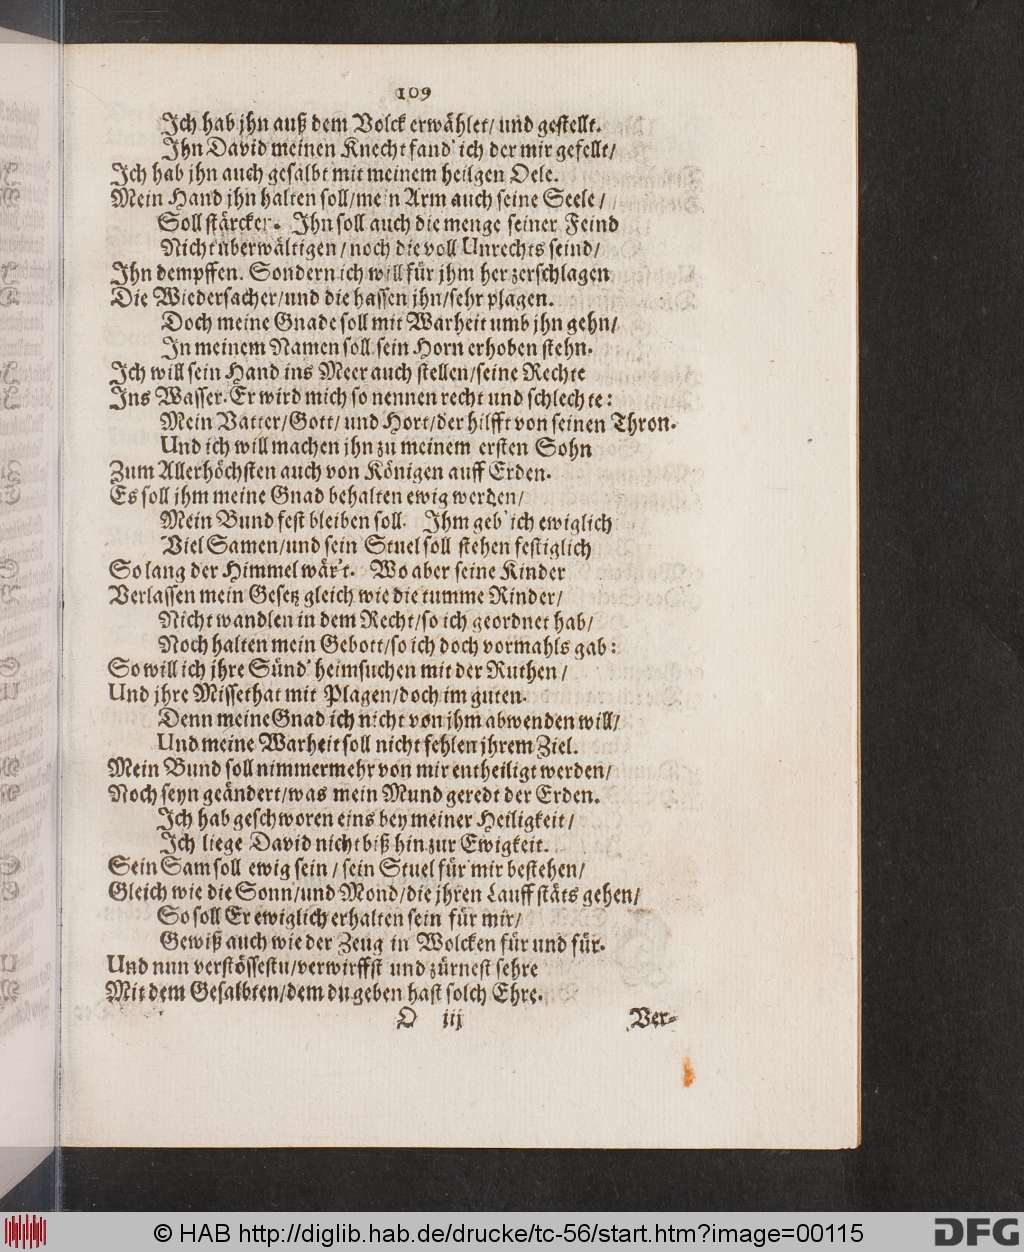 109
Ich hab jhn auß dem Volck erwählet/ und gestellt.
Ihn David meinen Knecht fand' ich der mir gefellt/
Ich hab jhn auch gesalbt mit meinem heilgen Oele.
Mein Hand jhn halten soll/me n Arm auch seine Seele/
Soll stärcken. Ihn soll auch die menge seiner Feind
Nicht überwältigen/noch die voll Unrechts seind/
Ihn dempffen. Sondern ich will für jhm her zerschlagen
Die Wiedersacher/und die hassen jhn/sehr plagen.
Doch meine Gnade soll mit Warheit umb jhn gehn/
In meinem Namen soll sein Horn erhoben stehn.
Ich will sein Hand ins Meer auch stellen/seine Rechte
Ins Wasser. Er wird mich so nennen recht und schlechte:
Mein Vatter/Gott/ und Hort/der hilfft von seinen Thron.
Und ich will machen jhn zu meinem ersten Sohn
Zum Allerhöchsten auch von Königen auff Erden.
Es soll jhm meine Gnad behalten ewig werden/
Mein Bund fest bleiben soll. Ihm geb' ich ewiglich
Viel Samen/und sein Stuel soll stehen festiglich
So lang der Himmel wär't. Wo aber seine Kinder
Verlassen mein Gesetz gleich wie die tumme Rinder/
Nicht wandlen in dem Recht/so ich geordnet hab/
Noch halten mein Gebott/so ich doch vormahls gab:
So will ich jhre Sünd' heimsuchen mit der Ruthen/
Und jhre Missethat mit Plagen/doch im guten.
Denn meine Gnad ich nicht von jhm abwenden will/
Und meine Warheit soll nicht fehlen jhrem Ziel.
Mein Bund soll nimmermehr von mir entheiligt werden/
Noch seyn geändert/was mein Mund geredt der Erden.
Ich hab geschworen eins bey meiner Heiligkeit/
Ich liege David nicht biß hin zur Ewigkeit.
Sein Sam soll ewig sein/sein Stuel für mir bestehen/
Gleich wie die Sonn/und Mond/die jhren Lauff stäts gehen/
So soll Er ewiglich erhalten sein für mir/
Gewiß auch wie der Zeug in Wolcken für und für.
Und nun verstössestu/verwirffst und zürnest sehre
Mit dem Gesalbten/dem du geben hast solch Ehre.
O iij Ver-
© HAB http://diglib.hab.de/drucke/tc-56/start.htm?image=00115
DFG